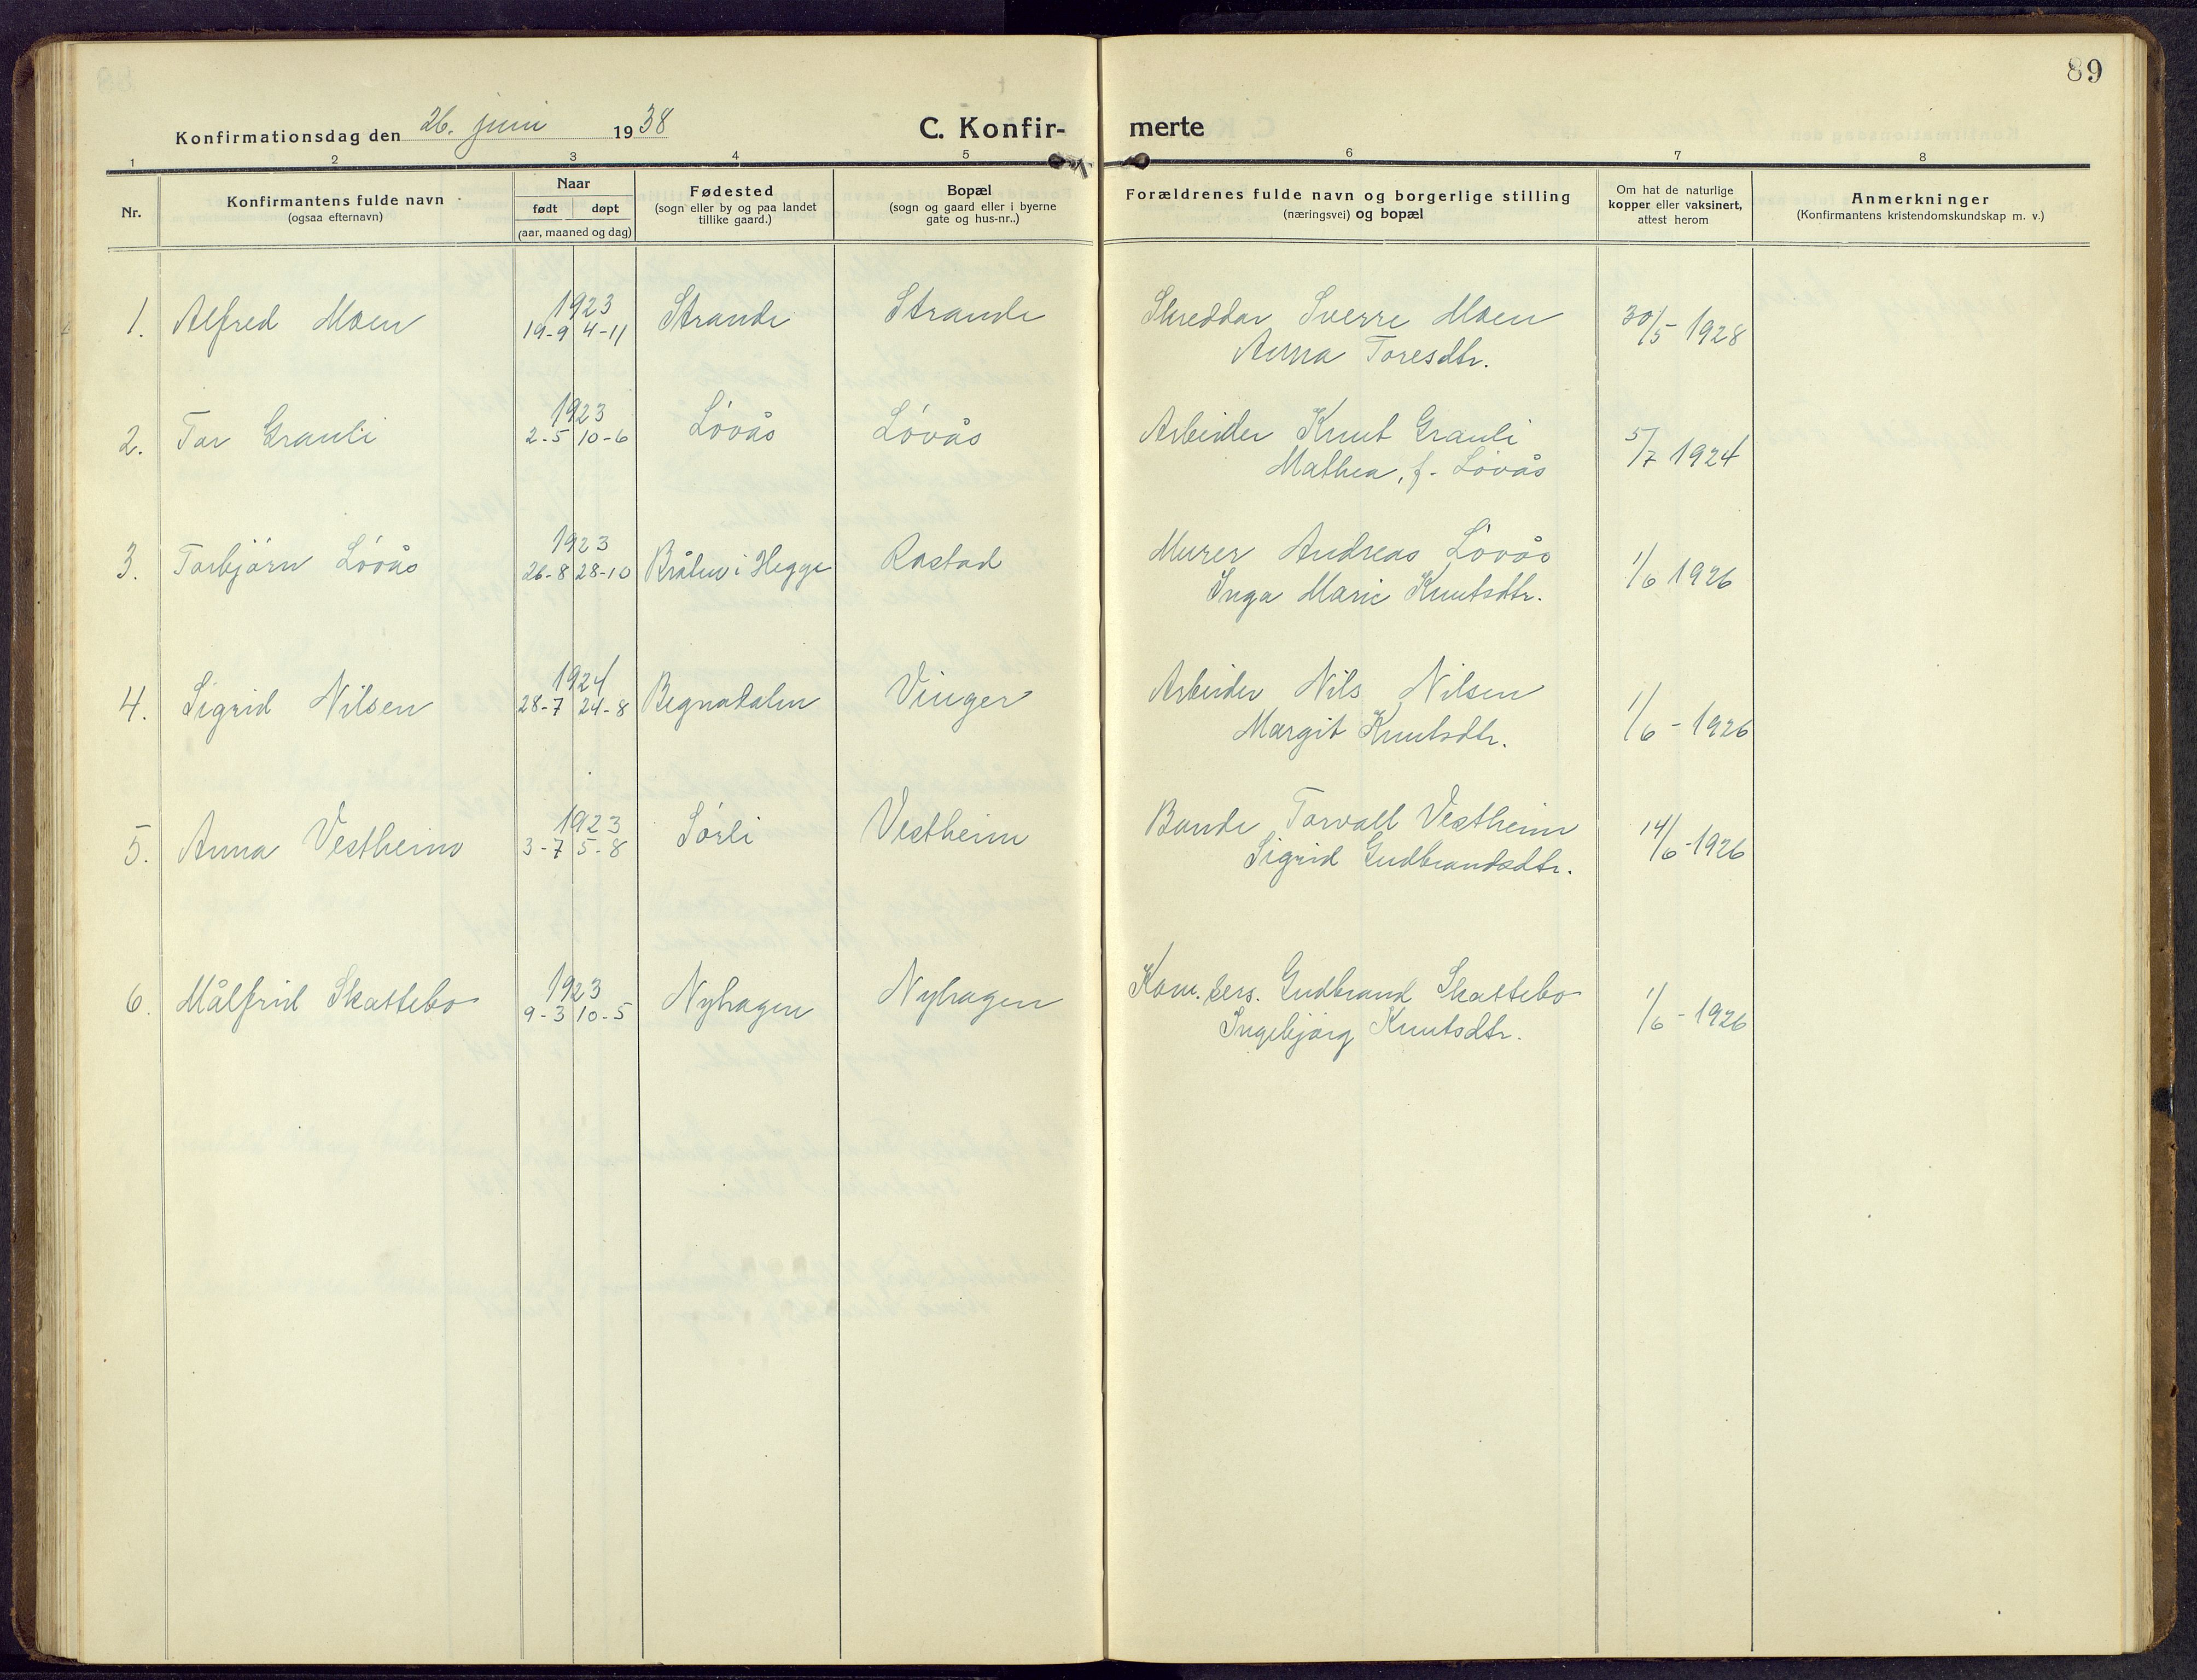 89
Konfirmationsdag den 26. juni 1938
C. Konfir-
merte
1 2 3 4 5 6 7 8
Nr.
Konfirmantens fulde navn
(ogsaa efternavn)
Naar
født døpt
(aar, maaned og dag)
Fødested
(sogn eller by og paa landet
tillike gaard.)
Bopæl
(sogn og gaard eller i byerne
gate og hus-nr..)
Forældrenes fulde navn og borgerlige stilling
(næringsvei) og bopæl
Om hat de naturlige
kopper eller vaksinert,
attest herom
Anmerkninger
(Konfirmantens kristendomskundskap m. v.)
1. Alfred Moen 1923 19-9 4-11 Strande Strande Skreddar Sverre Moen 30/5-1928
Anna Toresdtr.
2. Tor Grauli 1923 2-5 10-6 Lóvås Lóvås Arbeider Knut Grauli 5/7 1924
Mathea, f. Lóvås
3. Torbjórn Lóvås 1923 26-8 28-10 Bråten i Hegge Rastad Murer Andreas Lóvås 1/6 1926
Inga Marie Knutsdtr.
4. Sigrid Nilsen 1924 28-7 24-8 Begnadalen Vinger Arbeider Nils Nilsen 1/6-1926
Margit Knutsdtr.
5. Anna Vestheim 1923 3-7 5-8 Sórli Vestheim Bonde Torvall Vestheim 14/6-1926
Sigrid Gudbrandsdtr.
6. Målfrid Skattebo 1923 9-3 10-5 Nyhagen Nyhagen Kom. kass. Gudbrand Skattebo 1/6-1926
Ingebjórg Knutsdtr.